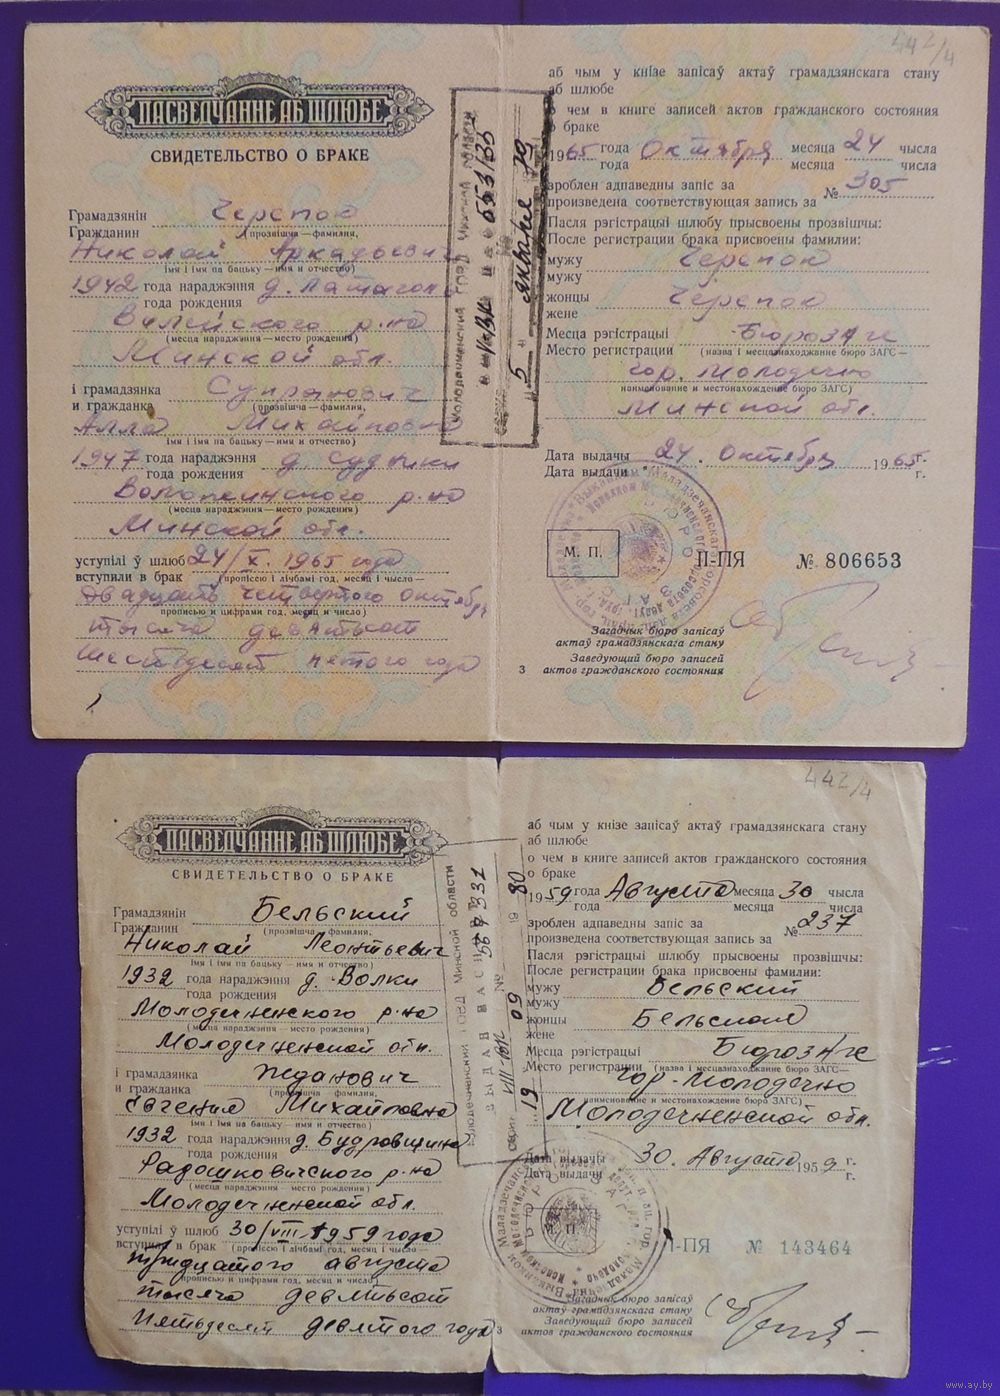 442/4
ПАСВЕДЧАННЕ АБ ШЛЮБЕ
СВИДЕТЕЛЬСТВО О БРАКЕ
Грамадзянін
Гражданин Черепок
(прозвішча—фамилия,
Николай Аркадьевич
імя і імя па бацьку—имя и отчество)
1942 года нараджэння
года рождения
Вилейского р-на
(месца нараджэння—место рождения)
Минской обл.
і грамадзянка
и гражданка Супранович
(прозвішча—фамилия,
Алла Михайловна
імя і імя па бацьку—имя и отчество)
1947 года нараджэння д. Судники
года рождения
(месца нараджэння—место рождения)
Минской обл.
уступілі ў шлюб 24/X. 1965 года
вступили в брак (пропіссю і лічбамі год, месяц і число—
двадцать четвертого октября
прописью и цифрами год, месяц и число)
тысяча девятьсот
шестьдесят пятого года
аб чым у кнізе запісаў актаў грамадзянскага стану
аб шлюбе
о чем в книге записей актов гражданского состояния
о браке
1965 года Октября месяца 24 чысла
года месяца числа
зроблен адпаведны запіс за
произведена соответствующая запись за № 305
Пасля рэгістрацыі шлюбу прысвоены прозвішчы:
После регистрации брака присвоены фамилии:
мужу
мужу Черепок
жонцы
жене Черепок
Месца рэгістрацыі Бюро ЗАГС
Место регистрации (назва і месцазнаходжанне бюро ЗАГС—
гор. Молодечно
наименование и местонахождение бюро ЗАГС)
Минской обл.
Дата выдачы
Дата выдачи 24. Октября 1965 г.
г.
М. П.
II-ПЯ № 806653
Загадчык бюро запісаў
актаў грамадзянскага стану
Заведующий бюро записей
3 актов гражданского состояния
442/4
ПАСВЕДЧАННЕ АБ ШЛЮБЕ
СВИДЕТЕЛЬСТВО О БРАКЕ
Грамадзянін
Гражданин Бельский
(прозвішча—фамилия,
Николай Леонтьевич
імя і імя па бацьку—имя и отчество)
1932 года нараджэння д. Волки
года рождения
Молодечненского р-на
(месца нараджэння—место рождения)
Молодечненской обл.
і грамадзянка
и гражданка Жданович
(прозвішча—фамилия,
Евгения Михайловна
імя і імя па бацьку—имя и отчество)
1932 года нараджэння д. Будровщина
года рождения
Радошковичского р-на
(месца нараджэння—место рождения)
Молодечненской обл.
уступілі ў шлюб 30/VIII 1959 года
вступили в брак (пропіссю і лічбамі год, месяц і число—
тридцатого августа
прописью и цифрами год, месяц и число)
тысяча девятьсот
пятьдесят девятого года
аб чым у кнізе запісаў актаў грамадзянскага стану
аб шлюбе
о чем в книге записей актов гражданского состояния
о браке
1959 года Августа месяца 30 чысла
года месяца числа
зроблен адпаведны запіс за
произведена соответствующая запись за № 237
Пасля рэгістрацыі шлюбу прысвоены прозвішчы:
После регистрации брака присвоены фамилии:
мужу
мужу Бельский
жонцы
жене Бельская
Месца рэгістрацыі Бюро ЗАГС
Место регистрации (назва і месцазнаходжанне бюро ЗАГС—
гор. Молодечно
наименование и местонахождение бюро ЗАГС)
Молодечненской обл.
Дата выдачы
Дата выдачи 30. Августа 1959 г.
г.
II-ПЯ № 143464
Загадчык бюро запісаў
актаў грамадзянскага стану
Заведующий бюро записей
3 актов гражданского состояния
www.ay.by